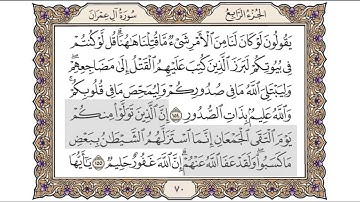 الجزء الرابع
سورة آل عمران
يَقُولُونَ لَوْ كَانَ لَنَا مِنَ ٱلْأَمْرِ شَىْءٌ مَّا قُتِلْنَا هَٰهُنَا ۗ قُل لَّوْ كُنتُمْ
فِى بُيُوتِكُمْ لَبَرَزَ ٱلَّذِينَ كُتِبَ عَلَيْهِمُ ٱلْقَتْلُ إِلَىٰ مَضَاجِعِهِمْ ۖ
وَلِيَبْتَلِىَ ٱللَّهُ مَا فِى صُدُورِكُمْ وَلِيُمَحِّصَ مَا فِى قُلُوبِكُمْ ۗ
وَٱللَّهُ عَلِيمٌۢ بِذَاتِ ٱلصُّدُورِ ١٥٤ إِنَّ ٱلَّذِينَ تَوَلَّوْا۟ مِنكُمْ
يَوْمَ ٱلْتَقَى ٱلْجَمْعَانِ إِنَّمَا ٱسْتَزَلَّهُمُ ٱلشَّيْطَٰنُ بِبَعْضِ
مَا كَسَبُوا۟ ۖ وَلَقَدْ عَفَا ٱللَّهُ عَنْهُمْ ۗ إِنَّ ٱللَّهَ غَفُورٌ حَلِيمٌ ١٥٥ يَٰٓأَيُّهَا
٧٠